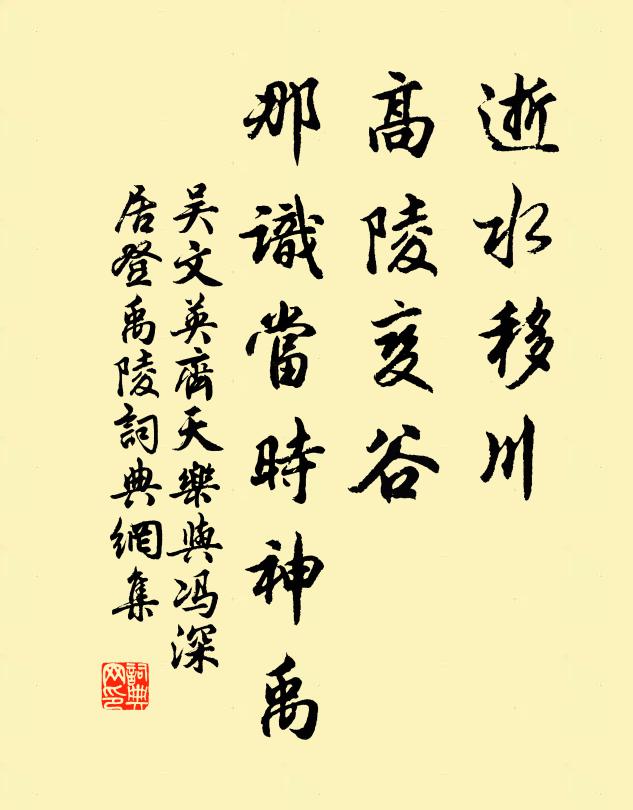 逝水移川
高陵变谷
那識當時神禹
吴文英齊天樂與冯深
居登禹陵詞典網集
詞典網印